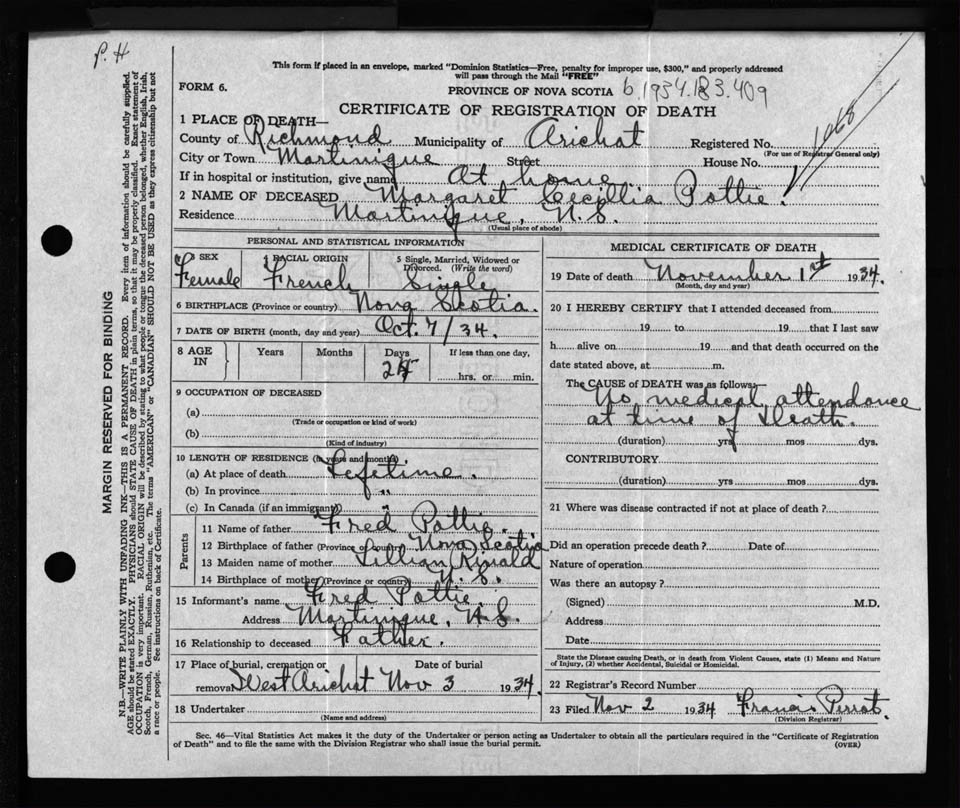 P. H
This form if placed in an envelope, marked "Dominion Statistics—Free, penalty for improper use, $300," and properly addressed
will pass through the Mail "FREE"
FORM 6.
PROVINCE OF NOVA SCOTIA b.1934.183.409
CERTIFICATE OF REGISTRATION OF DEATH
1 PLACE OF DEATH—
County of Richmond Municipality of Arichat Registered No.
(For use of Registrar General only)
City or Town Martinique Street House No.
If in hospital or institution, give name At home
2 NAME OF DECEASED Margaret Cecillia Pottie.
Residence Martinique, N.S.
(Usual place of abode)
PERSONAL AND STATISTICAL INFORMATION
3 SEX 4 RACIAL ORIGIN 5 Single, Married, Widowed or
Divorced. (Write the word)
Female French Single
6 BIRTHPLACE (Province or country) Nova Scotia.
7 DATE OF BIRTH (month, day and year) Oct. 7/34.
8 AGE IN Years Months Days If less than one day,
24 hrs. or min.
9 OCCUPATION OF DECEASED
(a)
(Trade or occupation or kind of work)
(b)
(Kind of industry)
10 LENGTH OF RESIDENCE (in years and months)
(a) At place of death Lefetime.
(b) In province "
(c) In Canada (if an immigrant)
Parents
11 Name of father Fred Pottie.
12 Birthplace of father (Province or country) Nova Scotia
13 Maiden name of mother Lillian Rynald
14 Birthplace of mother (Province or country) N. S.
15 Informant's name Fred Pottie
Address Martinique, N.S.
16 Relationship to deceased Father.
17 Place of burial, cremation or Date of burial
removal West Arichat Nov 3 1934.
18 Undertaker
(Name and address)
MEDICAL CERTIFICATE OF DEATH
19 Date of death November 1st 1934.
(Month, day and year)
20 I HEREBY CERTIFY that I attended deceased from
19 to 19 that I last saw
h alive on 19 and that death occurred on the
date stated above, at m.
The CAUSE of DEATH was as follows:
No medical attendance
at time of Death.
(duration) yrs mos dys.
CONTRIBUTORY
(duration) yrs mos dys.
21 Where was disease contracted if not at place of death?
Did an operation precede death? Date of
Nature of operation
Was there an autopsy?
(Signed) M.D.
Address
Date
State the Disease causing Death, or in death from Violent Causes, state (1) Means and Nature
of Injury, (2) whether Accidental, Suicidal or Homicidal.
22 Registrar's Record Number
23 Filed Nov 2 1934 Francis Perrot.
(Division Registrar)
Sec. 46—Vital Statistics Act makes it the duty of the Undertaker or person acting as Undertaker to obtain all the particulars required in the "Certificate of Registration
of Death" and to file the same with the Division Registrar who shall issue the burial permit. (OVER)
MARGIN RESERVED FOR BINDING
N.B.—WRITE PLAINLY WITH UNFADING INK—THIS IS A PERMANENT RECORD. Every item of information should be carefully supplied.
AGE should be stated EXACTLY. PHYSICIANS should STATE CAUSE OF DEATH in plain terms, so that it may be properly classified. Exact statement of
OCCUPATION is very important. RACIAL ORIGIN will be described by stating to what people or tongue the deceased person belonged, whether English, Irish,
Scotch, French, German, Russian, Ruthenian, etc. The terms "AMERICAN" or "CANADIAN" SHOULD NOT BE USED as they express citizenship but not
a race or people. See instructions on back of Certificate.